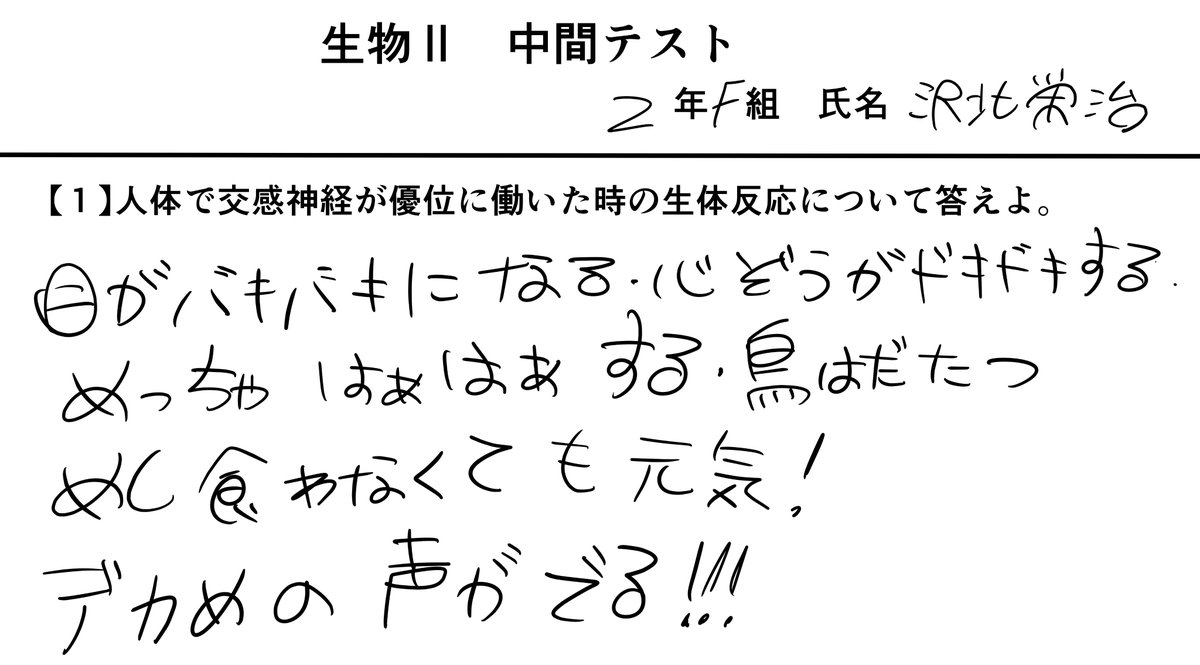 生物Ⅱ 中間テスト
2年F組 氏名 沢北栄治
【1】人体で交感神経が優位に働いた時の生体反応について答えよ。
目がバキバキになる・心ぞうがドキドキする・
めっちゃはぁはぁする・鳥はだたつ
めし食わなくても元気!
デカめの声がでる!!!